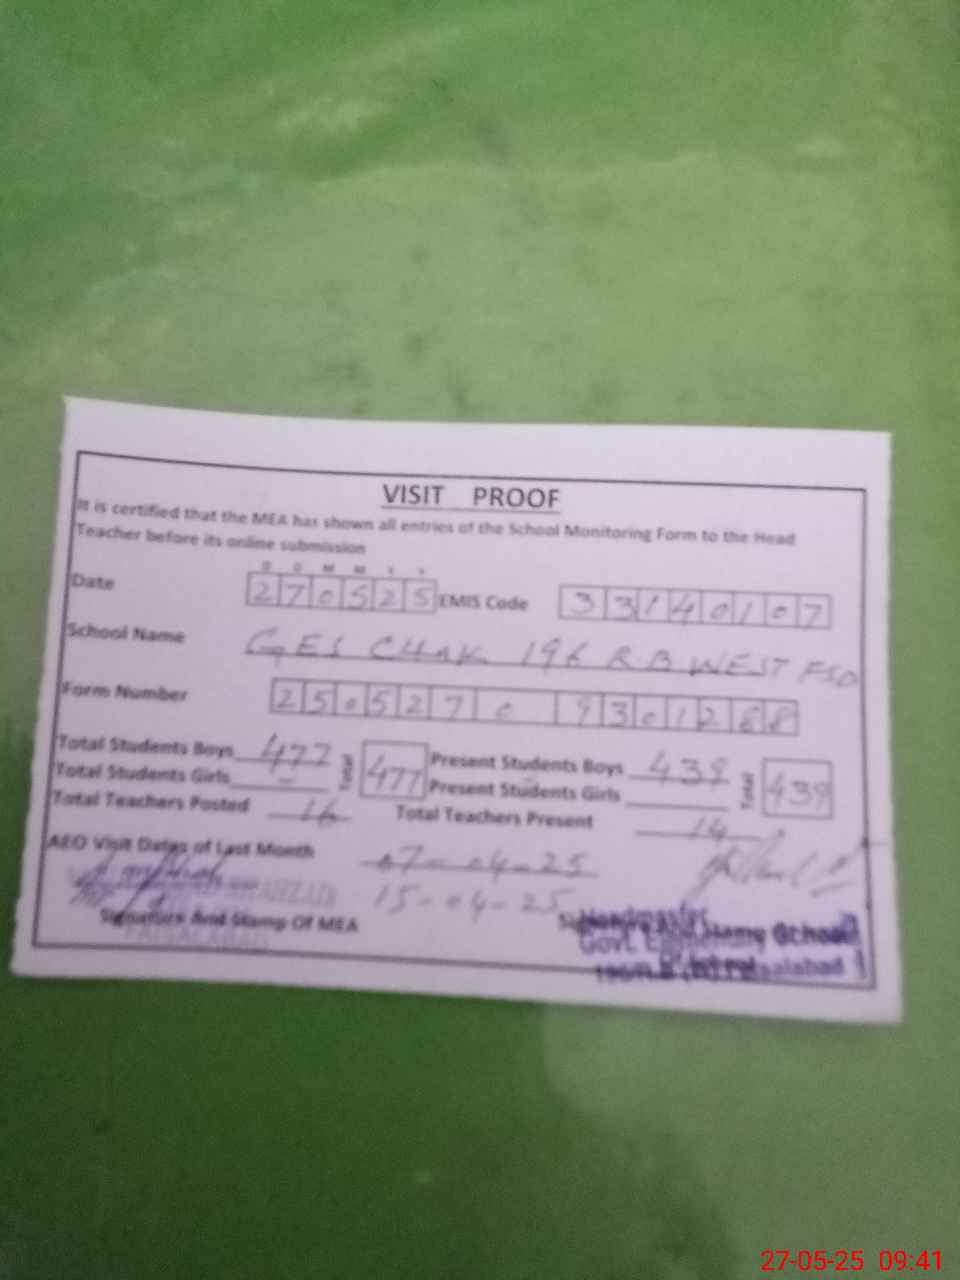 VISIT PROOF
It is certified that the MEA has shown all entries of the School Monitoring Form to the Head
Teacher before its online submission
D D M M Y Y
Date 270525 EMIS Code 33140107
School Name GES CHAK 196 RB WEST FSD
Form Number 2505270 9301288
Total Students Boys 477 Total 477 Present Students Boys 439 Total 439
Total Students Girls - Present Students Girls
Total Teachers Posted 16 Total Teachers Present 14
AEO Visit Dates of Last Month 07-04-25
15-04-25
Signature And Stamp Of MEA
Headmaster
Govt. Elementary School
196/R.B (W) Faisalabad
FAISALABAD
27-05-25 09:41